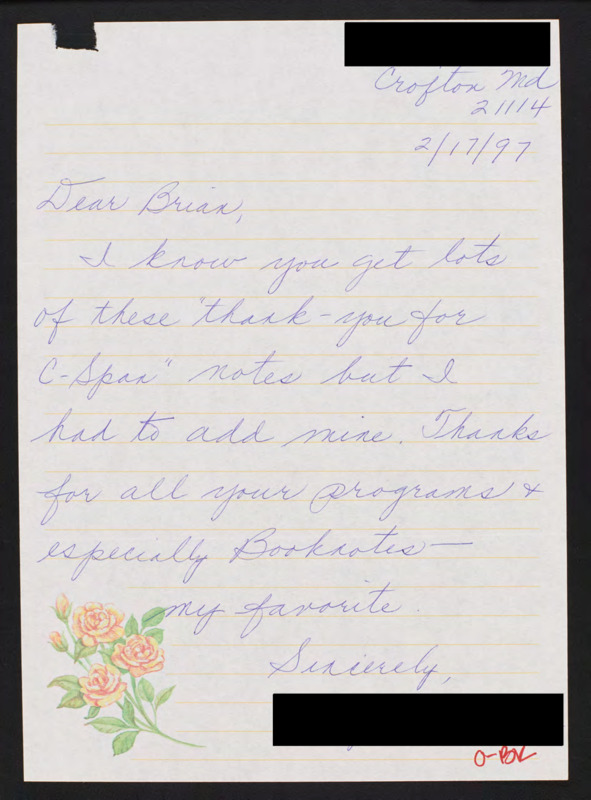 Crofton Md
21114
2/17/97
Dear Brian,
I know you get lots
of these "thank-you for
C-Span" notes but I
had to add mine. Thanks
for all your programs &
especially Booknotes—
my favorite.
Sincerely,